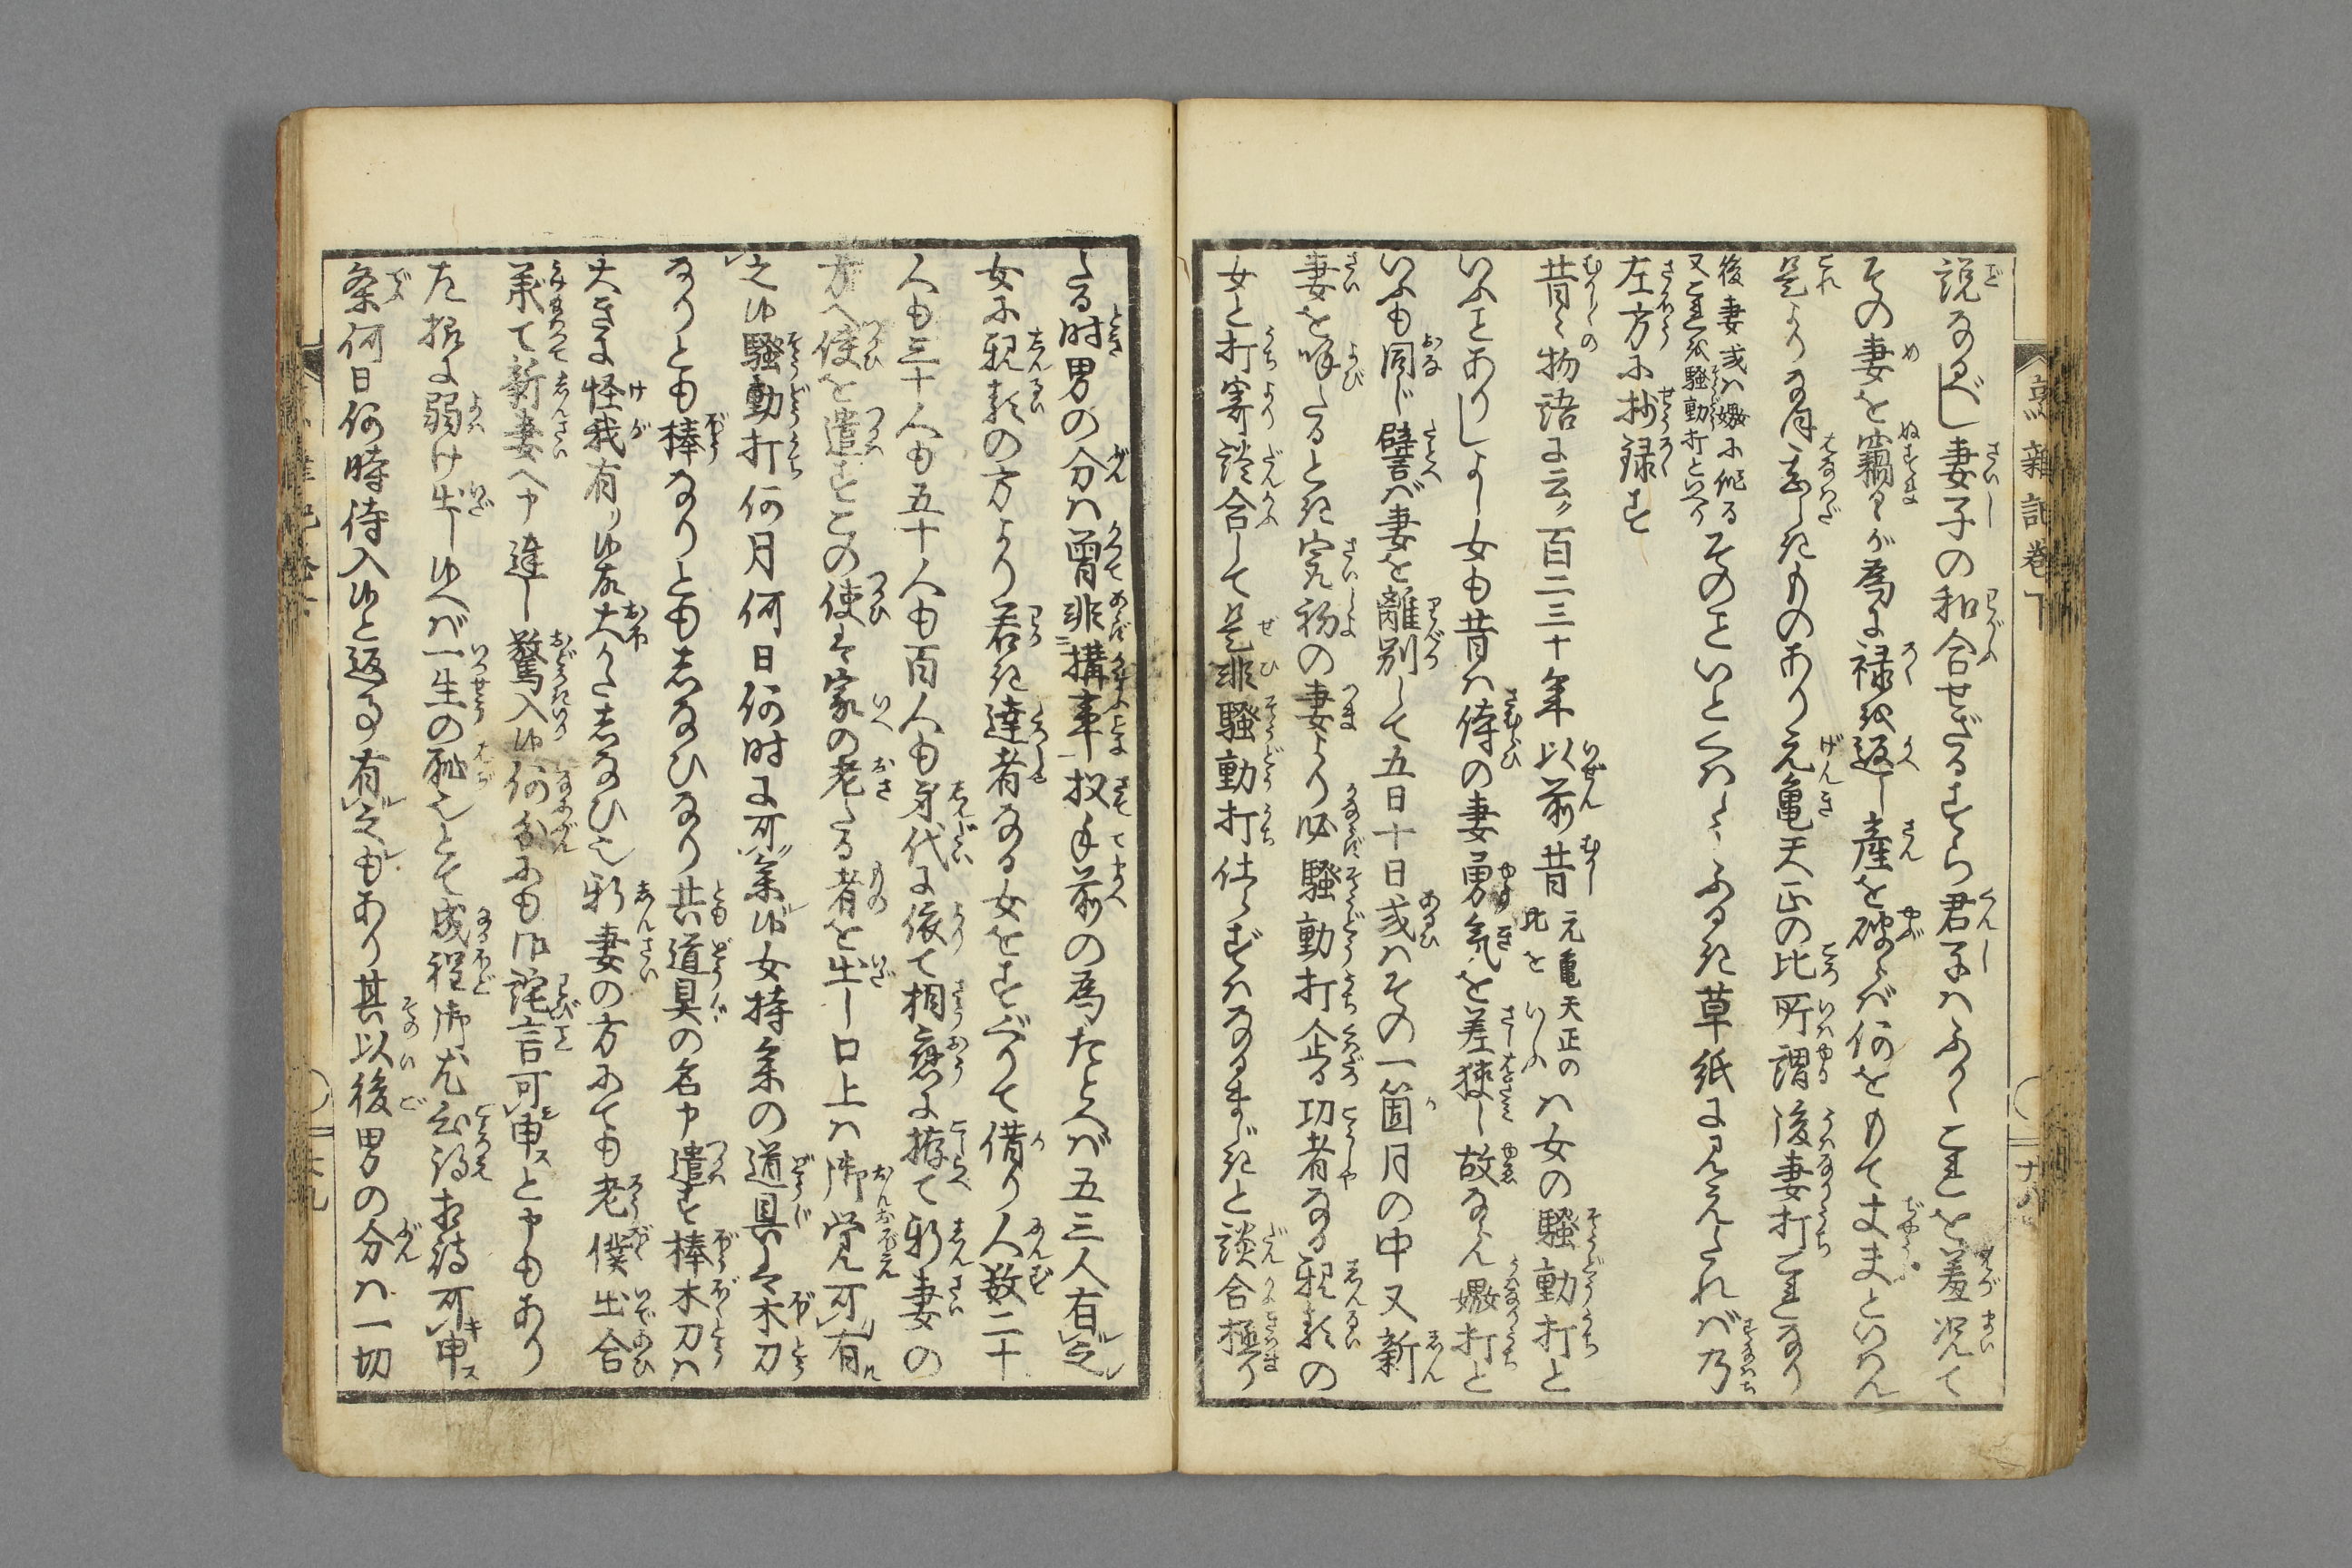 烹雑記巻下
説なるべし妻子の和合せざるすら君子はふかくこれを羞況て
その妻を竊るゝが為に禄を返し産を破らば何をもて丈夫といはん
是よりなほ甚しきものあり元亀天正の比所謂後妻打これなり
後妻或は嫐に作る
又これを騒動打といへり
そのこといとくはしくふるき草紙に見えたれば乃
左方に抄録す
昔々物語に云ク百二三十年以前昔
元亀天正の
比を
いふ
は女の騒動打と
いふことありしよし女も昔は侍の妻勇気を差挟し故ならん嫐打と
いふも同じ譬ば妻を離別して五日十日或はその一箇月の中又新
妻を呼たるとき家初の妻より必騒動打企る功者なる親類の
女と打寄談合して是非騒動打仕らずばなるまじきと談合極り
たる時男の分は曽非構事扨手前の為たとへば五三人有之
女に親類の方より若き達者なる女をすぐりて借り人数二十
人も三十人も五十人も百人も身代に依て相応に揃て新妻の
方へ使を遣すこの使は家の老たる者を出し口上は御覚可有
之候騒動打何月何日何時に可参候女持参の道具は木刀
なりとも棒なりともしなひなり共道具の名申遣す棒木刀は
大きに怪我有り候故大かたしなひ也新妻の方にても老僕出合
承て新妻へ申達し驚入候何分にも御詫言可申と申もあり
左様に弱け出し候へば一生の恥也とて成程御尤相心得相待可申
条何日何時待入候と返事有之もあり其以後男の分は一切